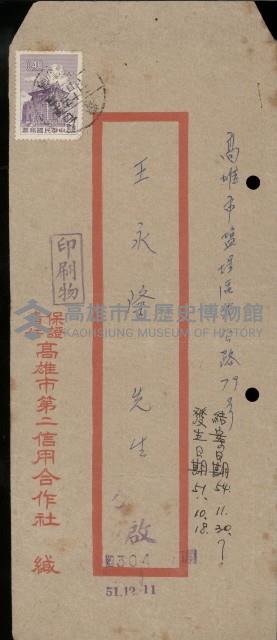 高雄市鹽埕區
路79号
王永隆 先生 啟
結案日期 54.11.30.?
發生日期 51.10.18.
印刷物
保證
高雄市第二信用合作社 緘
304
51.12.11
中華民國郵票
高雄市立歷史博物館
KAOHSIUNG MUSEUM OF HISTORY